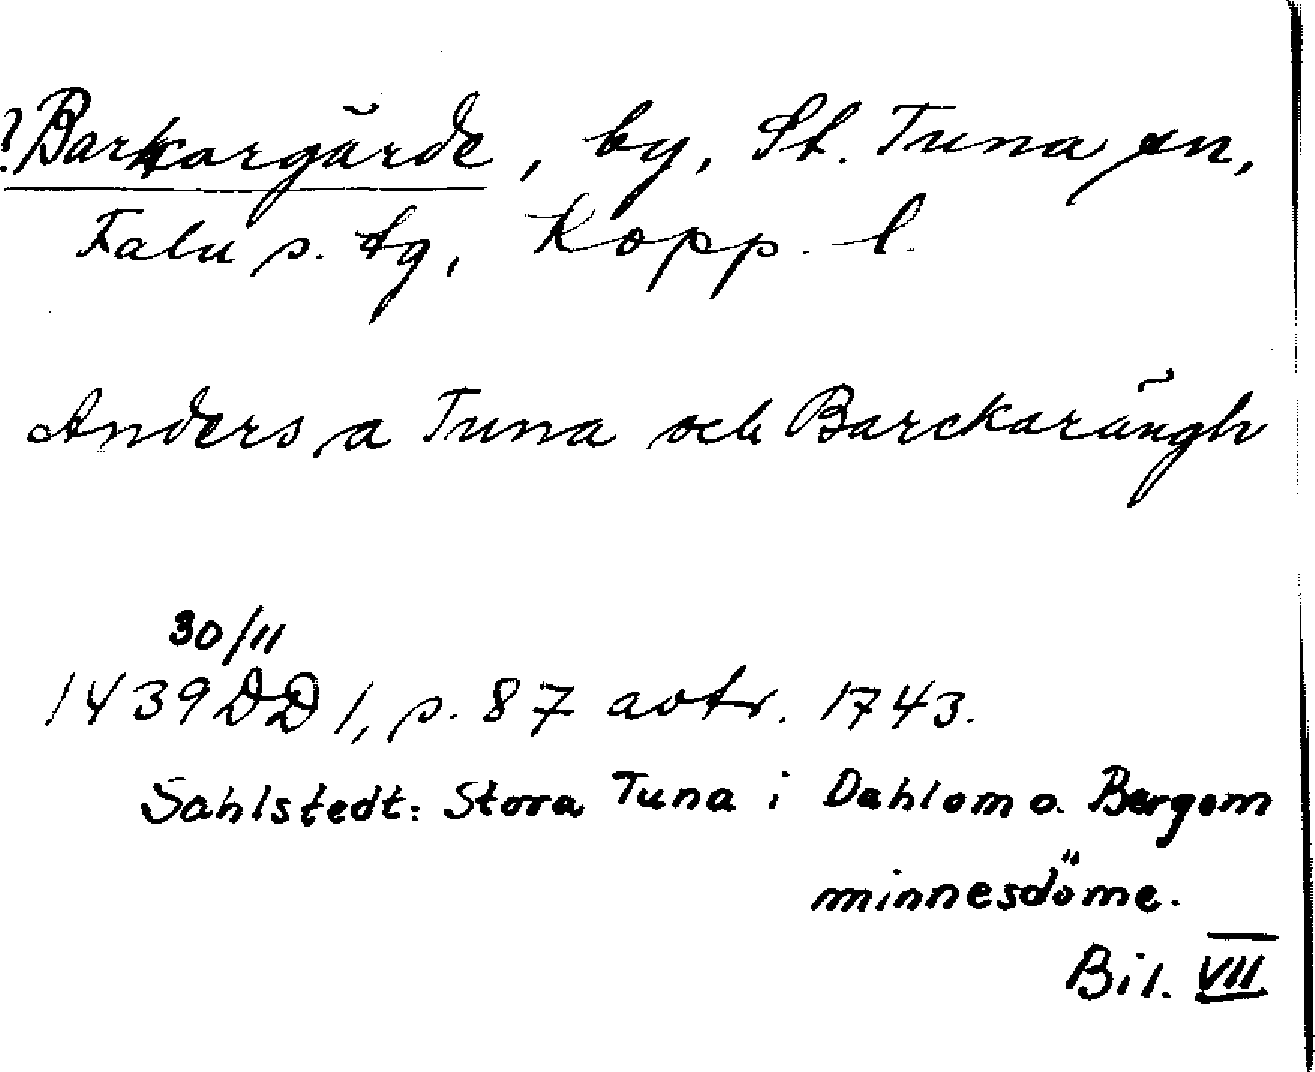 ?Barkargärde, by, St. Tuna sn,
Falu s. tg, Kopp. l.
Anders a Tuna och Barckarängh
30/11
1439 DD 1, p. 87 avtr. 1743.
Sahlstedt: Stora Tuna i Dahlom o. Bergom
minnesdöme.
Bil. VII